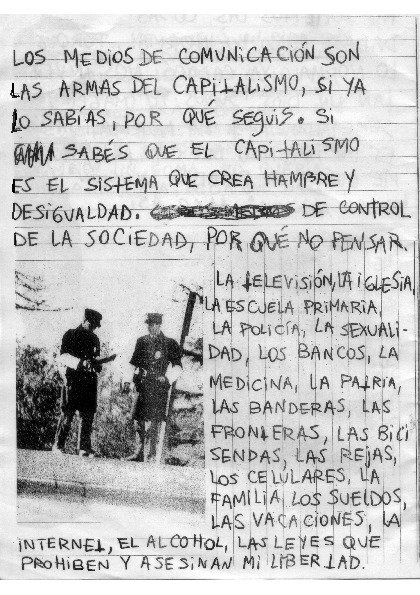 LOS MEDIOS DE COMUNICACIÓN SON
LAS ARMAS DEL CAPITALISMO, SI YA
LO SABÍAS, POR QUÉ SEGUIS. SI
SABÉS QUE EL CAPITALISMO
ES EL SISTEMA QUE CREA HAMBRE Y
DESIGUALDAD. DE CONTROL
DE LA SOCIEDAD, POR QUÉ NO PENSAR.
LA TELEVISIÓN, LA IGLESIA,
LA ESCUELA PRIMARIA,
LA POLICÍA, LA SEXUALI-
DAD, LOS BANCOS, LA
MEDICINA, LA PATRIA,
LAS BANDERAS, LAS
FRONTERAS, LAS BICI
SENDAS, LAS REJAS,
LOS CELULARES, LA
FAMILIA, LOS SUELDOS,
LAS VACACIONES, LA
INTERNET, EL ALCOHOL, LAS LEYES QUE
PROHIBEN Y ASESINAN MI LIBERTAD.